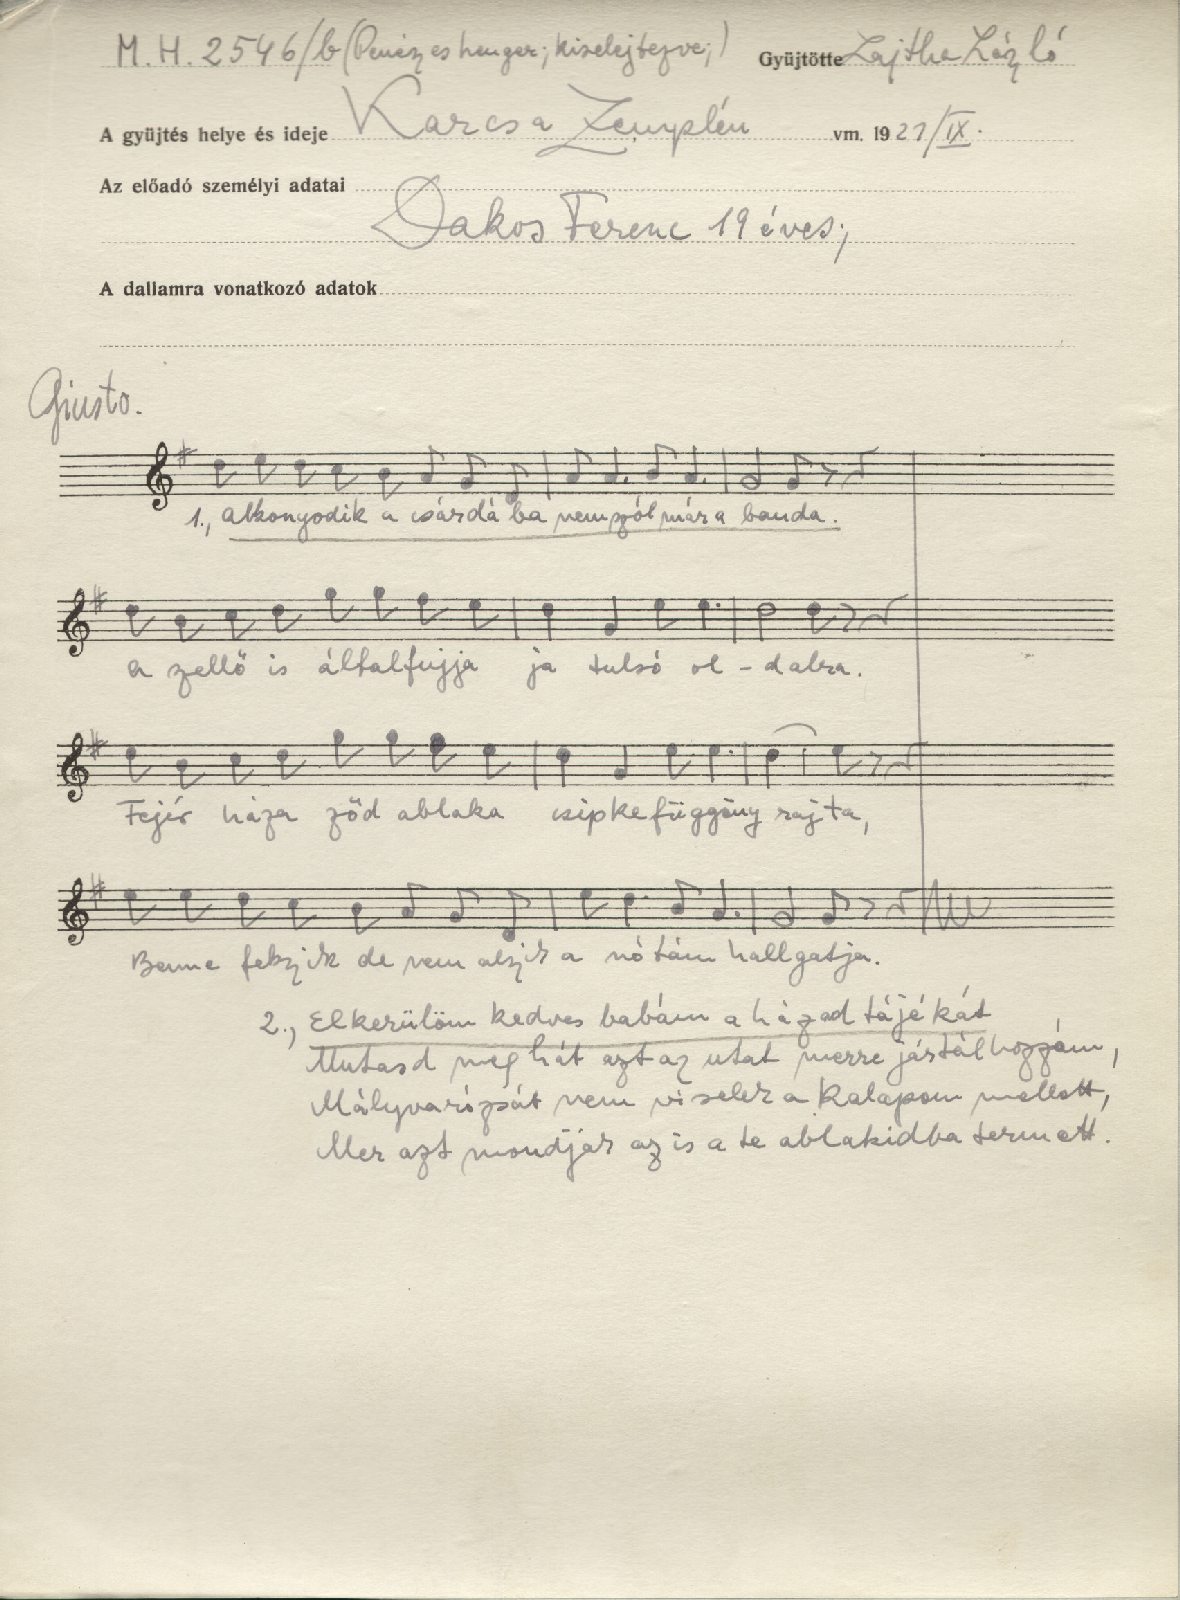 M. H. 2546/b (Penész es henger; kiselejtezve;) Gyüjtötte Lajtha László
A gyüjtés helye és ideje Karcsa Zemplén vm. 1921/IX.
Az előadó személyi adatai
Dakos Ferenc 19 éves;
A dallamra vonatkozó adatok
Giusto.
1., Alkonyodik a csárdába nem szól mára banda.
A zellő is általfujja ja tulsó ol - dalra.
Fejér háza ződ ablaka csipkefüggöny rajta,
Benne fekszik de nem alszik a nótám hallgatja.
2., Elkerülöm kedves babám a házad tájékát
Mutasd meg hát azt az utat merre jártál hozzám,
Mályvarózsát nem viselek a kalapom mellett,
Mer azt mondják az is a te ablakidba termett.